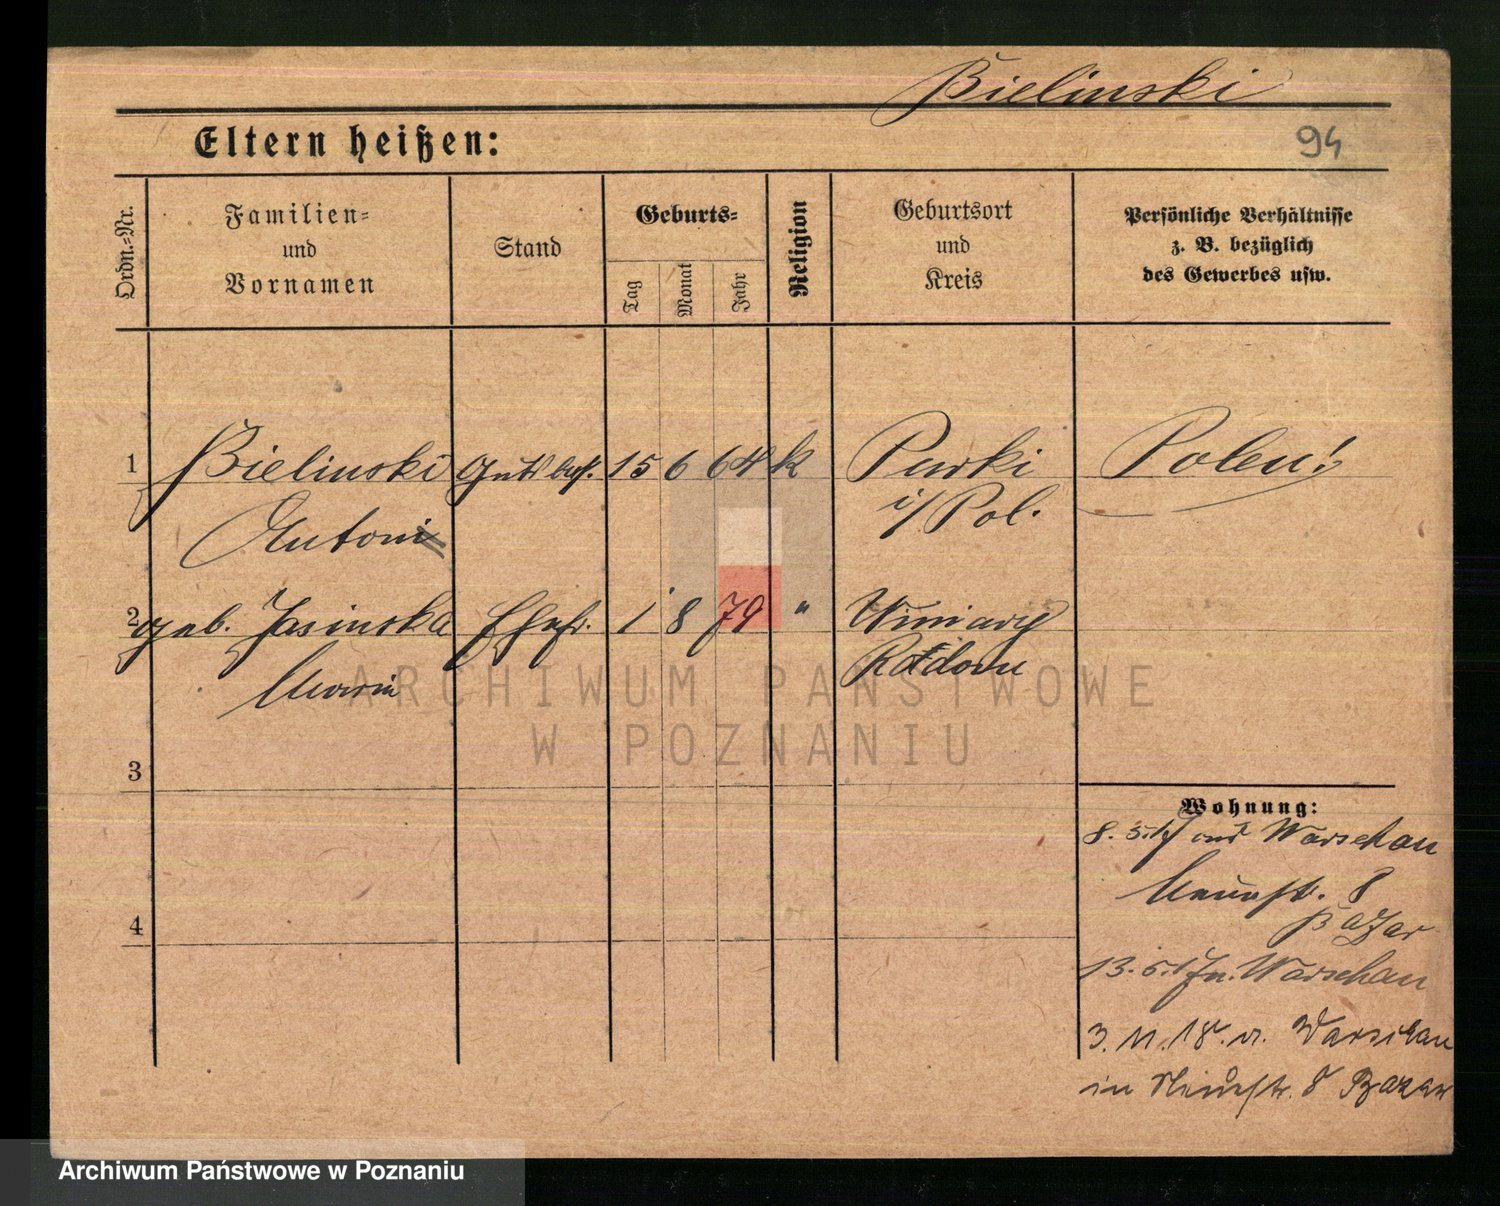 Bielinski
Eltern heißen:
94
Ordn.-Nr.
Familien-
und
Vornamen
Stand
Geburts-
Tag
Monat
Jahr
Religion
Geburtsort
und
Kreis
Persönliche Verhältnisse
z. B. bezüglich
des Gewerbes usw.
1
Bielinski
Antoni
Gutsbes.
15
6
64
k
i/Pol.
Polen!
2
geb. Jasinska
Ehefr.
1
8
79
"
Radom
3
4
Wohnung:
8. 5. 17 aus Warschau
Neuestr. 8
Bazar
13. 5. 17 n. Warschau
3. 11. 18. v. Warschau
in Neuestr. 8 Bazar
ARCHIWUM PAŃSTWOWE
W POZNANIU
Archiwum Państwowe w Poznaniu